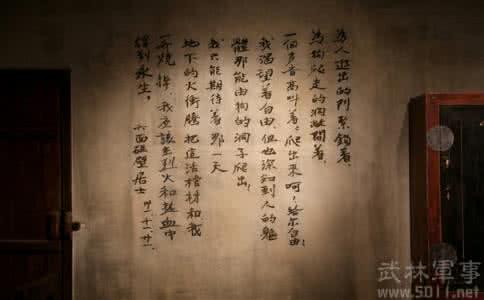 為人進出的門緊鎖着，
為狗爬走的洞敞開着，
一個声音高叫着：爬出來呵，給尔自由！
我渴望着自由，但也深知到人的軀
體那能由狗的洞子爬出！
我只能期待着那一天
地下的火衝騰把這活棺材和我
一齊燒掉，我應該在烈火和热血中
得到永生。
六面碰壁居士
卅一·十一·廿一
武林軍事
www.5011.net